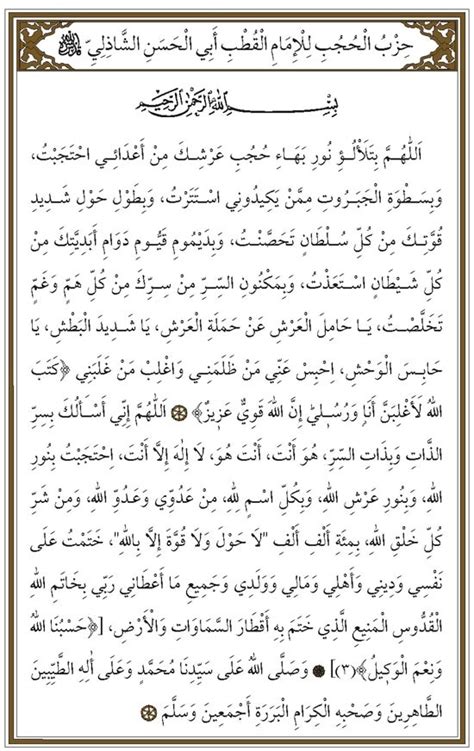 حِزْبُ الْحُجُبِ لِلْإِمَامِ الْقُطْبِ أَبِي الْحَسَنِ الشَّاذِلِيّ
بِسْمِ اللهِ الرَّحْمٰنِ الرَّحِيمِ
اَللّٰهُمَّ بِتَلَأْلُؤِ نُورِ بَهَاءِ حُجُبِ عَرْشِكَ مِنْ أَعْدَائِي احْتَجَبْتُ،
وَبِسَطْوَةِ الْجَبَرُوتِ مِمَّنْ يَكِيدُونِي اسْتَتَرْتُ، وَبِطَوْلِ حَوْلِ شَدِيدِ
قُوَّتِكَ مِنْ كُلِّ سُلْطَانٍ تَحَصَّنْتُ، وَبِدَيْمُومِ قَيُّومِ دَوَامِ أَبَدِيَّتِكَ مِنْ
كُلِّ شَيْطَانٍ اسْتَعَذْتُ، وَبِمَكْنُونِ السِّرِّ مِنْ سِرِّكَ مِنْ كُلِّ هَمٍّ وَغَمٍّ
تَخَلَّصْتُ، يَا حَامِلَ الْعَرْشِ عَنْ حَمَلَةِ الْعَرْشِ، يَا شَدِيدَ الْبَطْشِ، يَا
حَابِسَ الْوَحْشِ، اِحْبِسْ عَنِّي مَنْ ظَلَمَنِي وَاغْلِبْ مَنْ غَلَبَنِي ﴿كَتَبَ
اللهُ لَأَغْلِبَنَّ أَنَا۬ وَرُسُلِيٓ إِنَّ اللهَ قَوِيٌّ عَزِيزٌ﴾ اَللّٰهُمَّ إِنِّي أَسْأَلُكَ بِسِرِّ
الذَّاتِ وَبِذَاتِ السِّرِّ، هُوَ أَنْتَ، أَنْتَ هُوَ، لَا إِلٰهَ إِلَّا أَنْتَ، احْتَجَبْتُ بِنُورِ
اللهِ، وَبِنُورِ عَرْشِ اللهِ، وَبِكُلِّ اسْمٍ لِلهِ، مِنْ عَدُوِّي وَعَدُوِّ اللهِ، وَمِنْ شَرِّ
كُلِّ خَلْقِ اللهِ، بِمِئَةِ أَلْفِ أَلْفِ "لَا حَوْلَ وَلَا قُوَّةَ إِلَّا بِاللهِ"، خَتَمْتُ عَلَى
نَفْسِي وَدِينِي وَأَهْلِي وَمَالِي وَوَلَدِي وَجَمِيعِ مَا أَعْطَانِي رَبِّي بِخَاتَمِ اللهِ
الْقُدُّوسِ الْمَنِيعِ الَّذِي خَتَمَ بِهِ أَقْطَارَ السَّمَاوَاتِ وَالْأَرْضِ، [﴿حَسْبُنَا اللهُ
وَنِعْمَ الْوَكِيلُ﴾(٣)] وَصَلَّى اللهُ عَلَى سَيِّدِنَا مُحَمَّدٍ وَعَلَى أٰلِهِ الطَّيِّبِينَ
الطَّاهِرِينَ وَصَحْبِهِ الْكِرَامِ الْبَرَرَةِ أَجْمَعِينَ وَسَلَّمَ